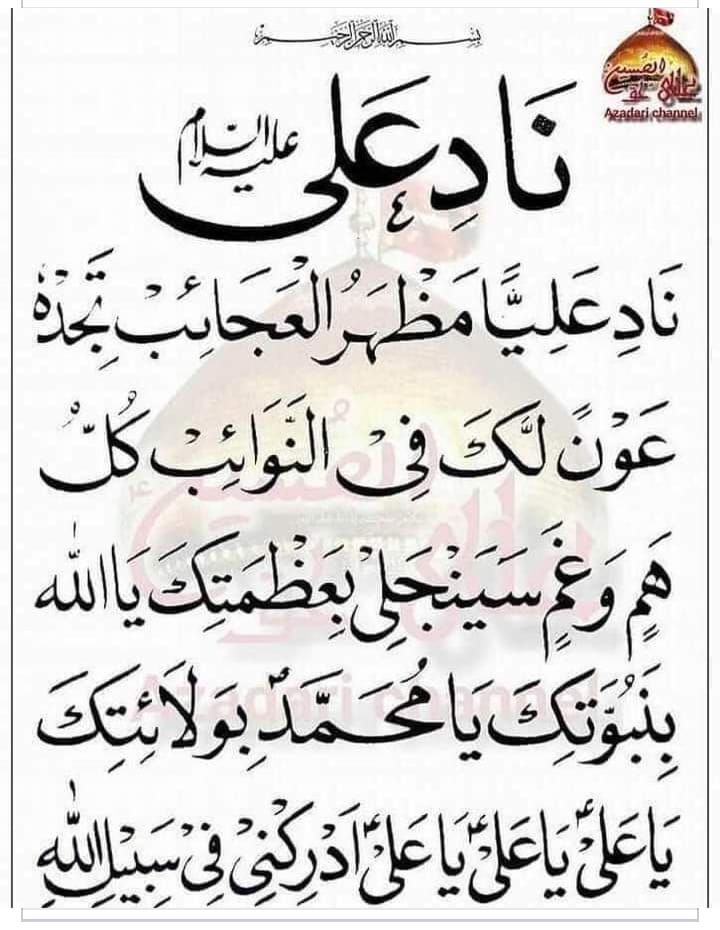 بسم الله الرحمن الرحيم
الحسین
Azadari channel
نَادِ عَلی علیہ السّلام
نَادِ عَلِيًّا مَظْهَرُ الْعَجَائِبْ تَجِدْهُ
عَوْنً لَّكَ فِیْ النَّوَائِبْ كُلّْ
هَمٍ وَغَمٍ سَيَنْجَلِیْ بِعَظْمَتِكَ يَا اللّٰه
بِنَبُوَّتِكَ يَا مُحَمَّدْ بِوِلَائِتِكَ
يَا عَلیْ يَا عَلیْ يَا عَلیْ اَدْرِكْنِیْ فِیْ سَبِيْلِ اللّٰهِ
Azadari channel